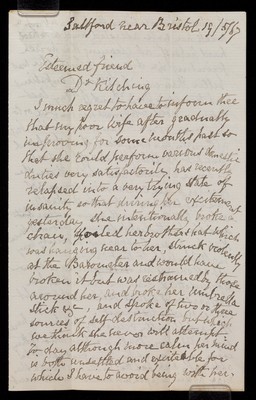 Saltford near Bristol 19/5/67
Esteemed friend
Dr Kitching
I much regret to have to inform thee
that my poor wife after gradually
improving for some months past so
that she could perform various domestic
duties very satisfactorily has recently
relapsed into a very trying state of
insanity so that during her excitement
yesterday she intentionally broke a
chair, her brothers hat which
was hanging near to her, struck violently
at the Barometer and would have
broken it but was restrained by those
around her, and broke her umbrella
stick &c, and spoke of two or three
sources of self-destruction
we think she never will attempt.
To day although more calm her mind
is both unsettled and excitable for
which I have to avoid being with her.